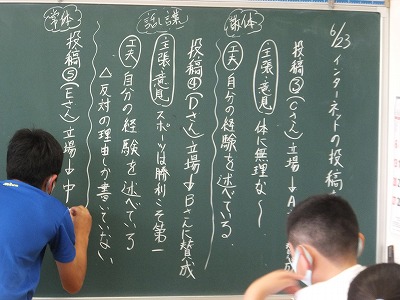 6/23
インターネットの投稿
投稿③(Cさん)立場→A
賛成
主張 意見 体に無理な〜
工夫 自分の経験を述べている。
投稿④(Dさん)立場→Bさんに賛成
主張 意見 スポーツは勝利こそ第一
工夫 自分の経験を述べている
△反対の理由しか書いていない
投稿⑤(Eさん)立場→中